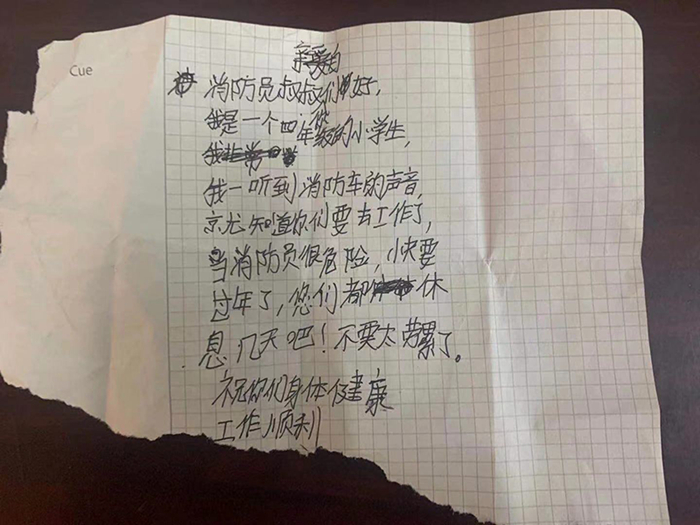 Cue
亲爱的
消防员叔叔们好,
我是一个四年级的小学生,
我非常
我一听到消防车的声音,
就知道你们要去工作了,
当消防员很危险,快要
过年了,您们都休
息几天吧!不要太劳累了。
祝你们身体健康
工作顺利